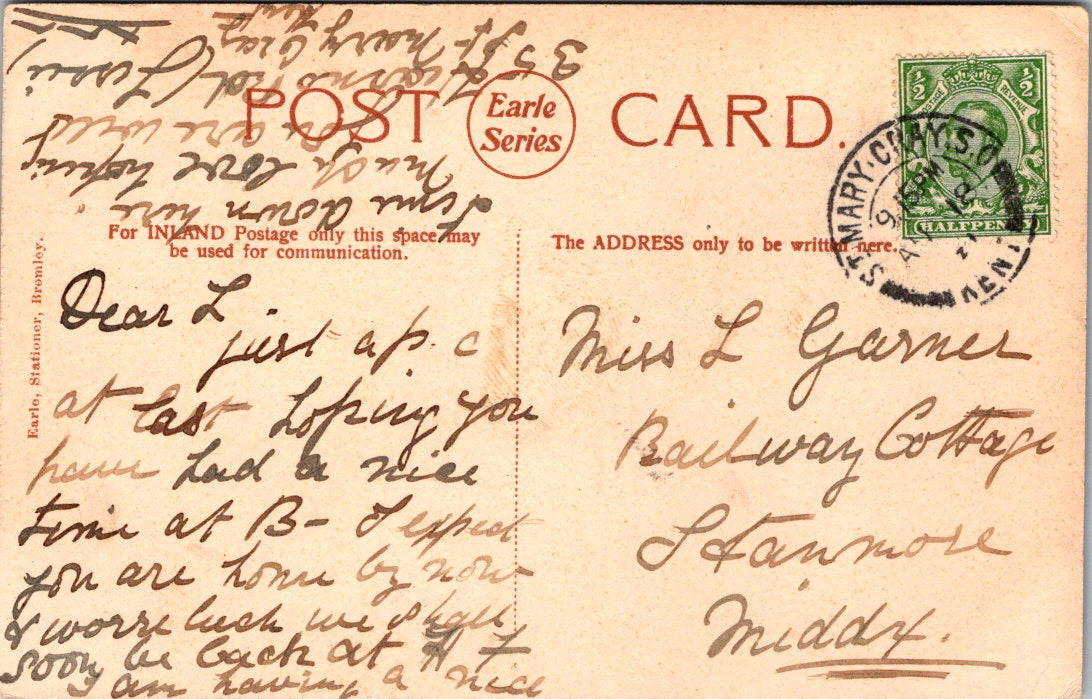 POST CARD.
Earle
Series
For INLAND Postage only this space may
be used for communication.
The ADDRESS only to be written here.
Earle, Stationer, Bromley.
½ ½
POSTAGE REVENUE
HALFPENNY
ST MARY CRAY S.O.
9.15PM
12
KENT
Dear L
just a p. c
at last hoping you
have had a nice
time at B- I expect
you are home by now
& worse luck we shall
soon be back at
I am having a nice
time down here.
much love hoping
you are well
3
St Mary Cray
Kent
Miss L Garner
Railway Cottage
Stanmore
Middx.